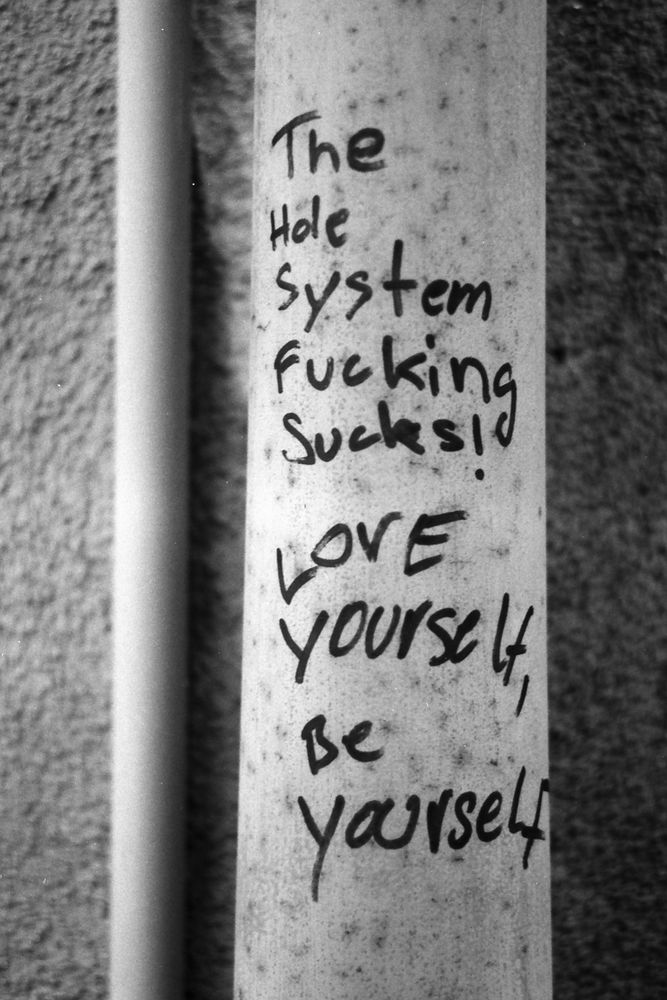 The
Hole
System
Fucking
Sucks!
LOVE
yourself,
Be
yourself